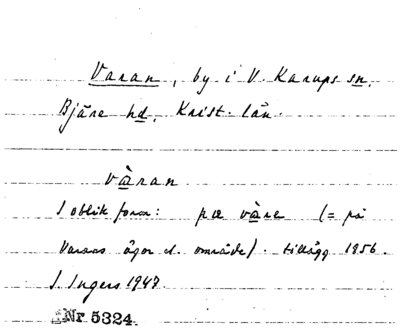 Varan, by i V. Karups sn.
Bjäre hd, Krist. län.
vàran
I oblik form: pæ vàre (= på
Varans ägor el. område). tillägg 1956.
I. Ingers 1947
Nr 5324